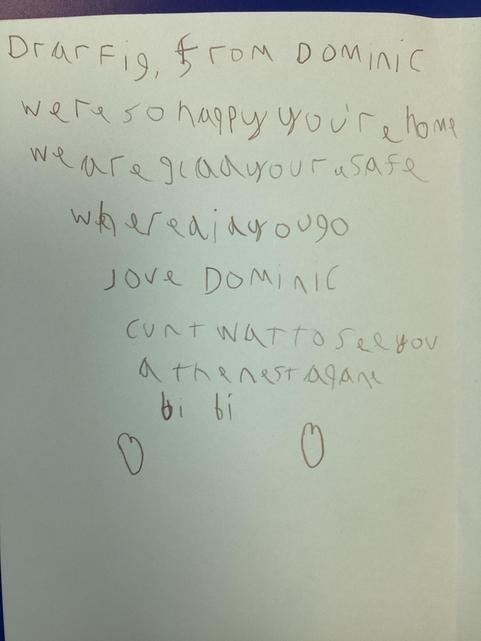 Drar Fig, from DOMINIC
we're so happy you're home
we are glad your a safe
where did you go
love DOMINIC
cunt wat to see you
a the nest agane
bi bi